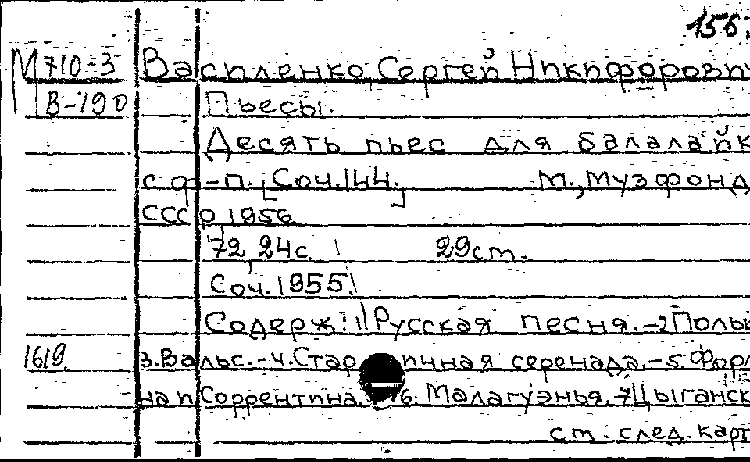 155.
М 710-3 Василенко, Сергей Никифорович
В-190 Пьесы.
Десять пьес для балалайк
с ф-п. [Соч. 144.] М., Музфонд
СССР, 1956
72, 24с. 29см.
Соч. 1955.
Содерж.: 1. Русская песня.-2 Поль
1619 3. Вальс.-4. Стар инная серенада.-5. Фор
на п Соррентина. 6. Малагуэнья. 7 Цыганск
см. след. карт